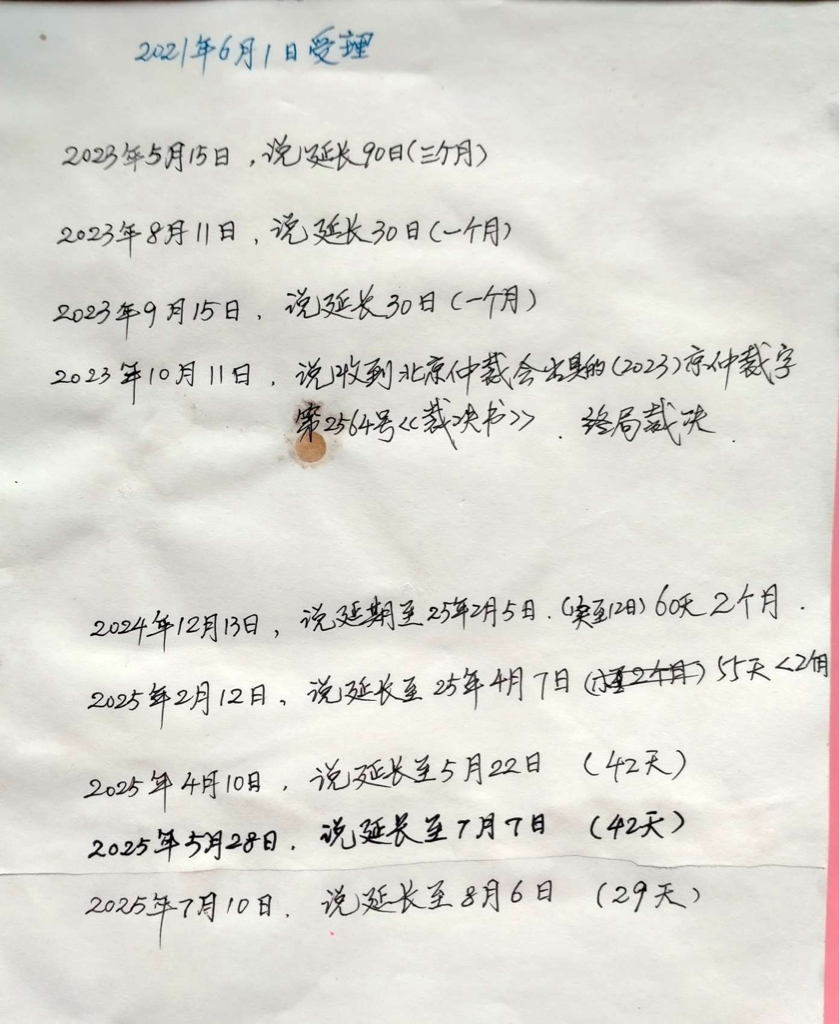 2021年6月1日受理
2023年5月15日，说延长90日(三个月)
2023年8月11日，说延长30日(一个月)
2023年9月15日，说延长30日(一个月)
2023年10月11日，说收到北京仲裁会出具的(2023)京仲裁字
第2564号《裁决书》．终局裁决．
2024年12月13日，说延期至25年2月5日．(实至12日)60天2个月．
2025年2月12日，说延长至25年4月7日 55天<2个月
2025年4月10日，说延长至5月22日 (42天)
2025年5月28日．说延长至7月7日 (42天)
2025年7月10日．说延长至8月6日 (29天)